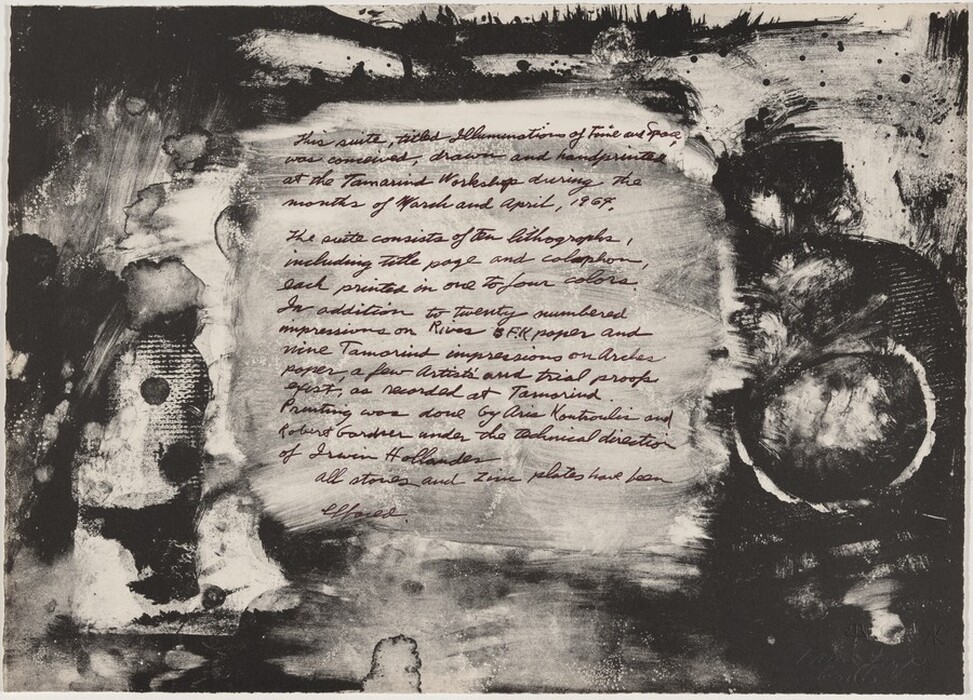 This suite, titled Illuminations of Time and Space,
was conceived, drawn and handprinted
at the Tamarind Workshop during the
months of March and April, 1964.
The suite consists of ten lithographs,
including title page and colophon,
each printed in one to four colors.
In addition to twenty numbered
impressions on Rives BFK paper and
nine Tamarind impressions on Arches
paper, a few Artist's and trial proofs
exist, as recorded at Tamarind.
Printing was done by Aris Koutroulis and
Robert Gardner under the technical direction
of Irwin Hollander
All stones and zinc plates have been
effaced.